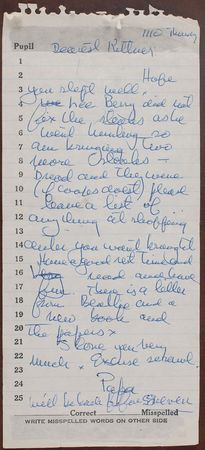 1110 Thursday
Pupil Dearest Kittner
1
2 Hope
3 you slept well.
4 Lee Berry did not
5 fix the steaks as he
6 went hunting so
7 am bringing two
8 more steaks –
9 bread and the wine
10 (if wops doesn't) please
11 leave a list of
12 anything at shopping
13
14 center you want brought
15 Have good rest and
16 read and have
17 fun. There is a letter
18 from Beatle and a
19 new book and
20 the papers x
21 I love you very
22 much x Excuse scrawl.
23
24 Papa
25 will be back before eleven
Correct Misspelled
WRITE MISSPELLED WORDS ON OTHER SIDE